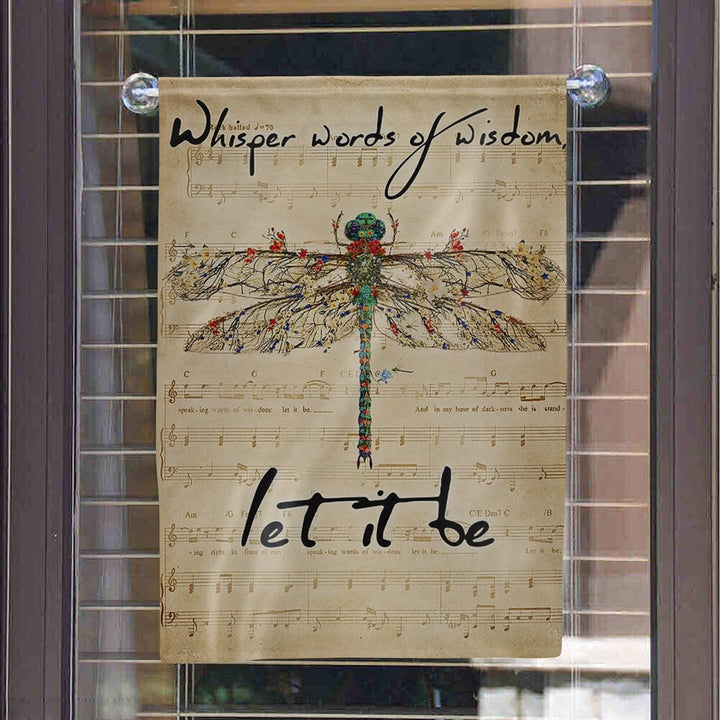 Whisper words of wisdom,
Rock ballad ♩=70
F C Am /G Fmaj7 F6
C G F C/E G
speak-ing words of wis-dom: let it be. And in my hour of dark-ness she is stand-
Am /G F C/E Dm7 C /B
-ing right in front of me. speak-ing words of wis-dom: let it be Let it be.
let it be